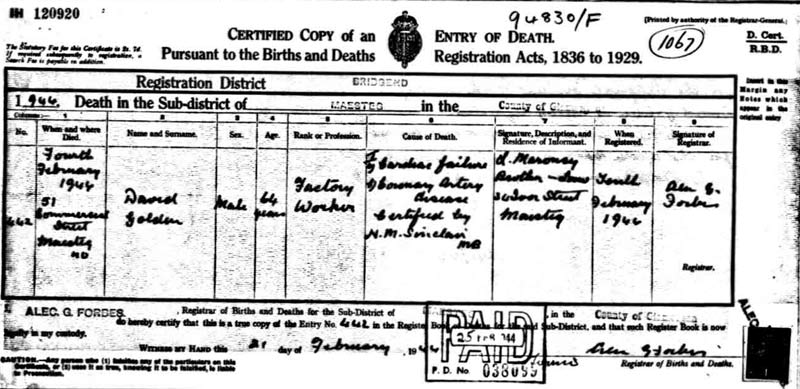 IH 120920
94830/F
CERTIFIED COPY of an ENTRY OF DEATH.
Pursuant to the Births and Deaths Registration Acts, 1836 to 1929.
[Printed by authority of the Registrar-General.]
1067
D. Cert.
R.B.D.
The Statutory Fee for this Certificate is 2s. 7d.
If required subsequently to registration, a
Search Fee is payable in addition.
Registration District BRIDGEND
1944. Death in the Sub-district of MAESTEG in the County of
Insert in this
Margin any
Notes which
appear in the
original entry
Columns:— 1 2 3 4 5 6 7 8 9
No.
When and where Died.
Name and Surname.
Sex.
Age.
Rank or Profession.
Cause of Death.
Signature, Description, and Residence of Informant.
When Registered.
Signature of Registrar.
442
Fourth
February
1944
51
Commercial
Street
Maesteg
UD
David
Golden
Male
64
years
Factory
Worker
Cardiac failure
Coronary Artery
disease
Certified by
N. M. Sinclair
MB
Brother-in-law
Street
Maesteg
Fourth
February
1944
Alec G.
Forbes
Registrar.
I, ALEC. G. FORBES, Registrar of Births and Deaths for the Sub-District of in the County of
do hereby certify that this is a true copy of the Entry No. 442 in the Register Book of Deaths for the said Sub-District, and that such Register Book is now
legally in my custody.
WITNESS MY HAND this 21 day of February, 1944
Alec G Forbes
Registrar of Births and Deaths.
CAUTION.—Any person who (1) falsifies any of the particulars on this
Certificate, or (2) uses it as true, knowing it to be falsified, is liable
to Prosecution.
PAID
25 FEB 1944
P. D. No. 038099
ALEC